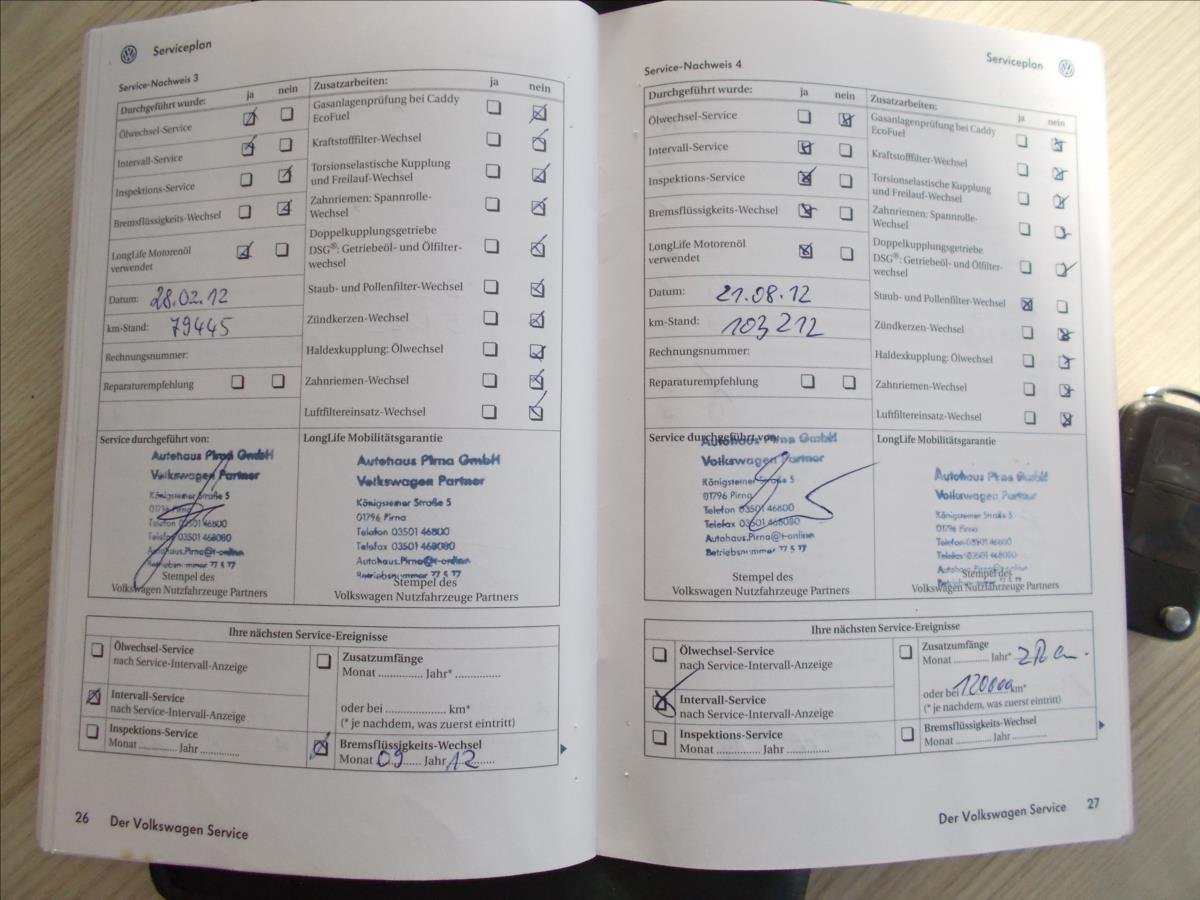 Serviceplan
Service-Nachweis 3
Durchgeführt wurde: ja nein
Ölwechsel-Service
Intervall-Service
Inspektions-Service
Bremsflüssigkeits-Wechsel
LongLife Motorenöl
verwendet
Datum: 28.02.12
km-Stand: 79445
Rechnungsnummer:
Reparaturempfehlung
Zusatzarbeiten: ja nein
Gasanlagenprüfung bei Caddy
EcoFuel
Kraftstofffilter-Wechsel
Torsionselastische Kupplung
und Freilauf-Wechsel
Zahnriemen: Spannrolle-
Wechsel
Doppelkupplungsgetriebe
DSG®: Getriebeöl- und Ölfilter-
wechsel
Staub- und Pollenfilter-Wechsel
Zündkerzen-Wechsel
Haldexkupplung: Ölwechsel
Zahnriemen-Wechsel
Luftfiltereinsatz-Wechsel
Service durchgeführt von:
Autohaus Pirna GmbH
Volkswagen Partner
Königsteiner Straße 5
01796 Pirna
Telefon 03501 46800
Telefax 03501 468080
Autohaus.Pirna@t-online
Betriebsnummer 77 5 77
Stempel des
Volkswagen Nutzfahrzeuge Partners
LongLife Mobilitätsgarantie
Autohaus Pirna GmbH
Volkswagen Partner
Königsteiner Straße 5
01796 Pirna
Telefon 03501 46800
Telefax 03501 468080
Autohaus.Pirna@t-online
Betriebsnummer 77 5 77
Stempel des
Volkswagen Nutzfahrzeuge Partners
Ihre nächsten Service-Ereignisse
Ölwechsel-Service
nach Service-Intervall-Anzeige
Intervall-Service
nach Service-Intervall-Anzeige
Inspektions-Service
Monat ............ Jahr ............
Zusatzumfänge
Monat ............ Jahr* ............
oder bei .................... km*
(* je nachdem, was zuerst eintritt)
Bremsflüssigkeits-Wechsel
Monat 09 Jahr 12
26 Der Volkswagen Service
Serviceplan
Service-Nachweis 4
Durchgeführt wurde: ja nein
Ölwechsel-Service
Intervall-Service
Inspektions-Service
Bremsflüssigkeits-Wechsel
LongLife Motorenöl
verwendet
Datum: 21.08.12
km-Stand: 103212
Rechnungsnummer:
Reparaturempfehlung
Zusatzarbeiten: ja nein
Gasanlagenprüfung bei Caddy
EcoFuel
Kraftstofffilter-Wechsel
Torsionselastische Kupplung
und Freilauf-Wechsel
Zahnriemen: Spannrolle-
Wechsel
Doppelkupplungsgetriebe
DSG®: Getriebeöl- und Ölfilter-
wechsel
Staub- und Pollenfilter-Wechsel
Zündkerzen-Wechsel
Haldexkupplung: Ölwechsel
Zahnriemen-Wechsel
Luftfiltereinsatz-Wechsel
Service durchgeführt von:
Autohaus Pirna GmbH
Volkswagen Partner
Königsteiner Straße 5
01796 Pirna
Telefon 03501 46800
Telefax 03501 468080
Autohaus.Pirna@t-online
Betriebsnummer 77 5 77
Stempel des
Volkswagen Nutzfahrzeuge Partners
LongLife Mobilitätsgarantie
Autohaus Pirna GmbH
Volkswagen Partner
Königsteiner Straße 5
01796 Pirna
Telefon 03501 46800
Telefax 03501 468080
Stempel des
Volkswagen Nutzfahrzeuge Partners
Ihre nächsten Service-Ereignisse
Ölwechsel-Service
nach Service-Intervall-Anzeige
Intervall-Service
nach Service-Intervall-Anzeige
Inspektions-Service
Monat ............ Jahr ............
Zusatzumfänge
Monat ............ Jahr*
oder bei 120000 km*
(* je nachdem, was zuerst eintritt)
Bremsflüssigkeits-Wechsel
Monat ............ Jahr ............
Der Volkswagen Service 27